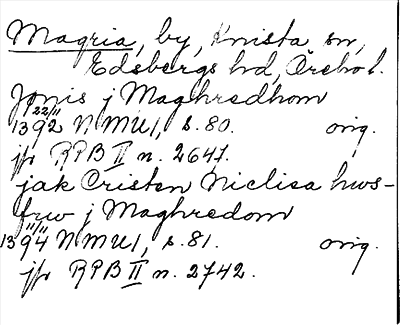 Magria, by, Knista sn,
Edsbergs hd, Örebro l.
Jonis j Maghredhom
22/11
1392 NMU1, s. 80. orig.
jfr RPB II n. 2647.
jak Cristen Niclisa hws-
frw j Maghredom
11/11
1394 NMU1, s. 81. orig.
jfr RPB II n. 2742.